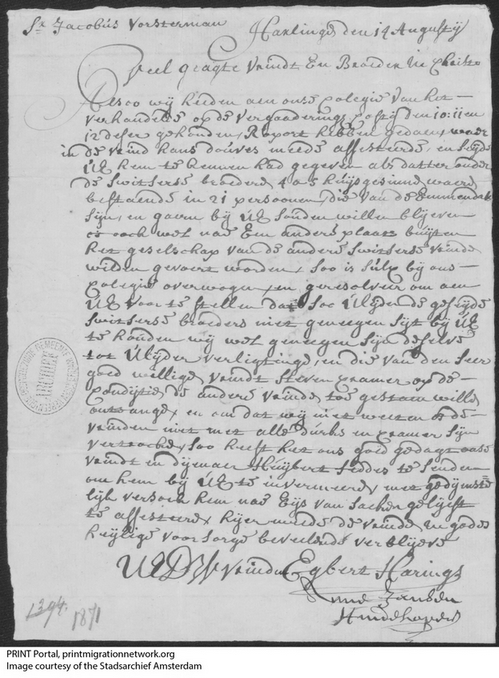 Sr Jacobus Vorsterman Harlingen den 14 Augustij
Veel geagte Vrindt En Broeder in Christo
Alsoo wij heeden aen onse Colegie van het
verhandelde op de vergaadering tot den 10: 11 en
12 deser gehouden, Raport hebben gedaen, waer
in de vrind Hans douwes meede assisteerde en seijde
UE hem te kennen had gegeven als datter onder
de Switserse broeders 4 a 5 huijsgesinnen waeren
bestaende in 21 persoonen, die van de Emmendals
sijn, en gaern bij UE souden willen blijven
of ook wel na Een ander plaats buijten
het geselschap van de andere Switserse vrinden
wilden gevoert worden, soo is sulx bij ons
Colegie overwogen, en geresolveert om aen
UE voor te stellen dat soo UE lijden de geseijde
Switserse broeders niet genegen sijt bij UE
te houden wij wel genegen sijn deselve
tot UE lijder verligtinge, en die van den seer
goed willige vrindt Steven Cramer op de
Conditie de andere vrinden toe gestaen willen
ontvange, en om dat wij niet weeten of de
vrinden niet met alle durks en Cramer sijn
vertrocken, soo heeft het ons goed gedagt onse
vrindt en dijenaer Huijbert Feddes te senden
om hem bij UE te informeeren met gedijenste
lijk versoek hem nae Eijs van Saeken gelijft
te assisteeren, hijer meede de vrinden in godes
heijlige voorsorge beveelende verblijve
UE DW Vrinden Egbert Harings
Jansen
1394.
1871
PRINT Portal, printmigrationnetwork.org
Image courtesy of the Stadsarchief Amsterdam